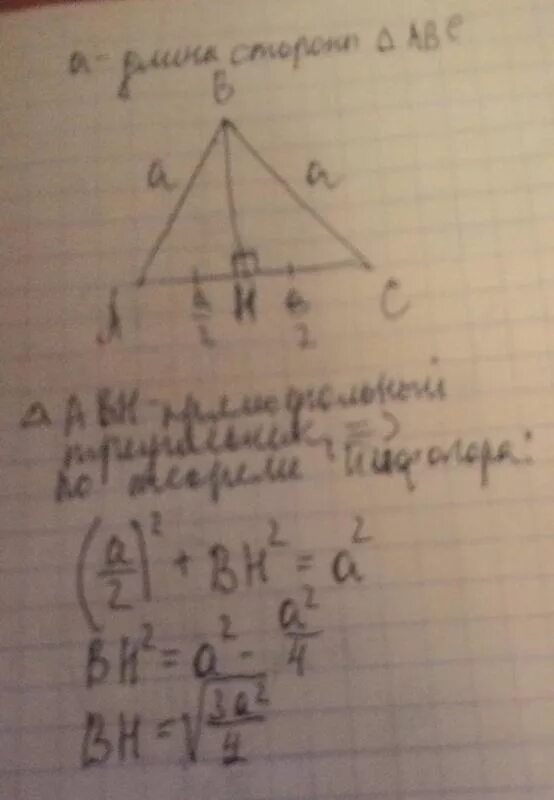 a - длина стороны △ ABC
B
a a
A a/2 H a/2 C
△ ABH - прямоугольный
треугольник, =>
по теореме Пифагора:
(a/2)² + BH² = a²
BH² = a² - a²/4
BH = √(3a²/4)